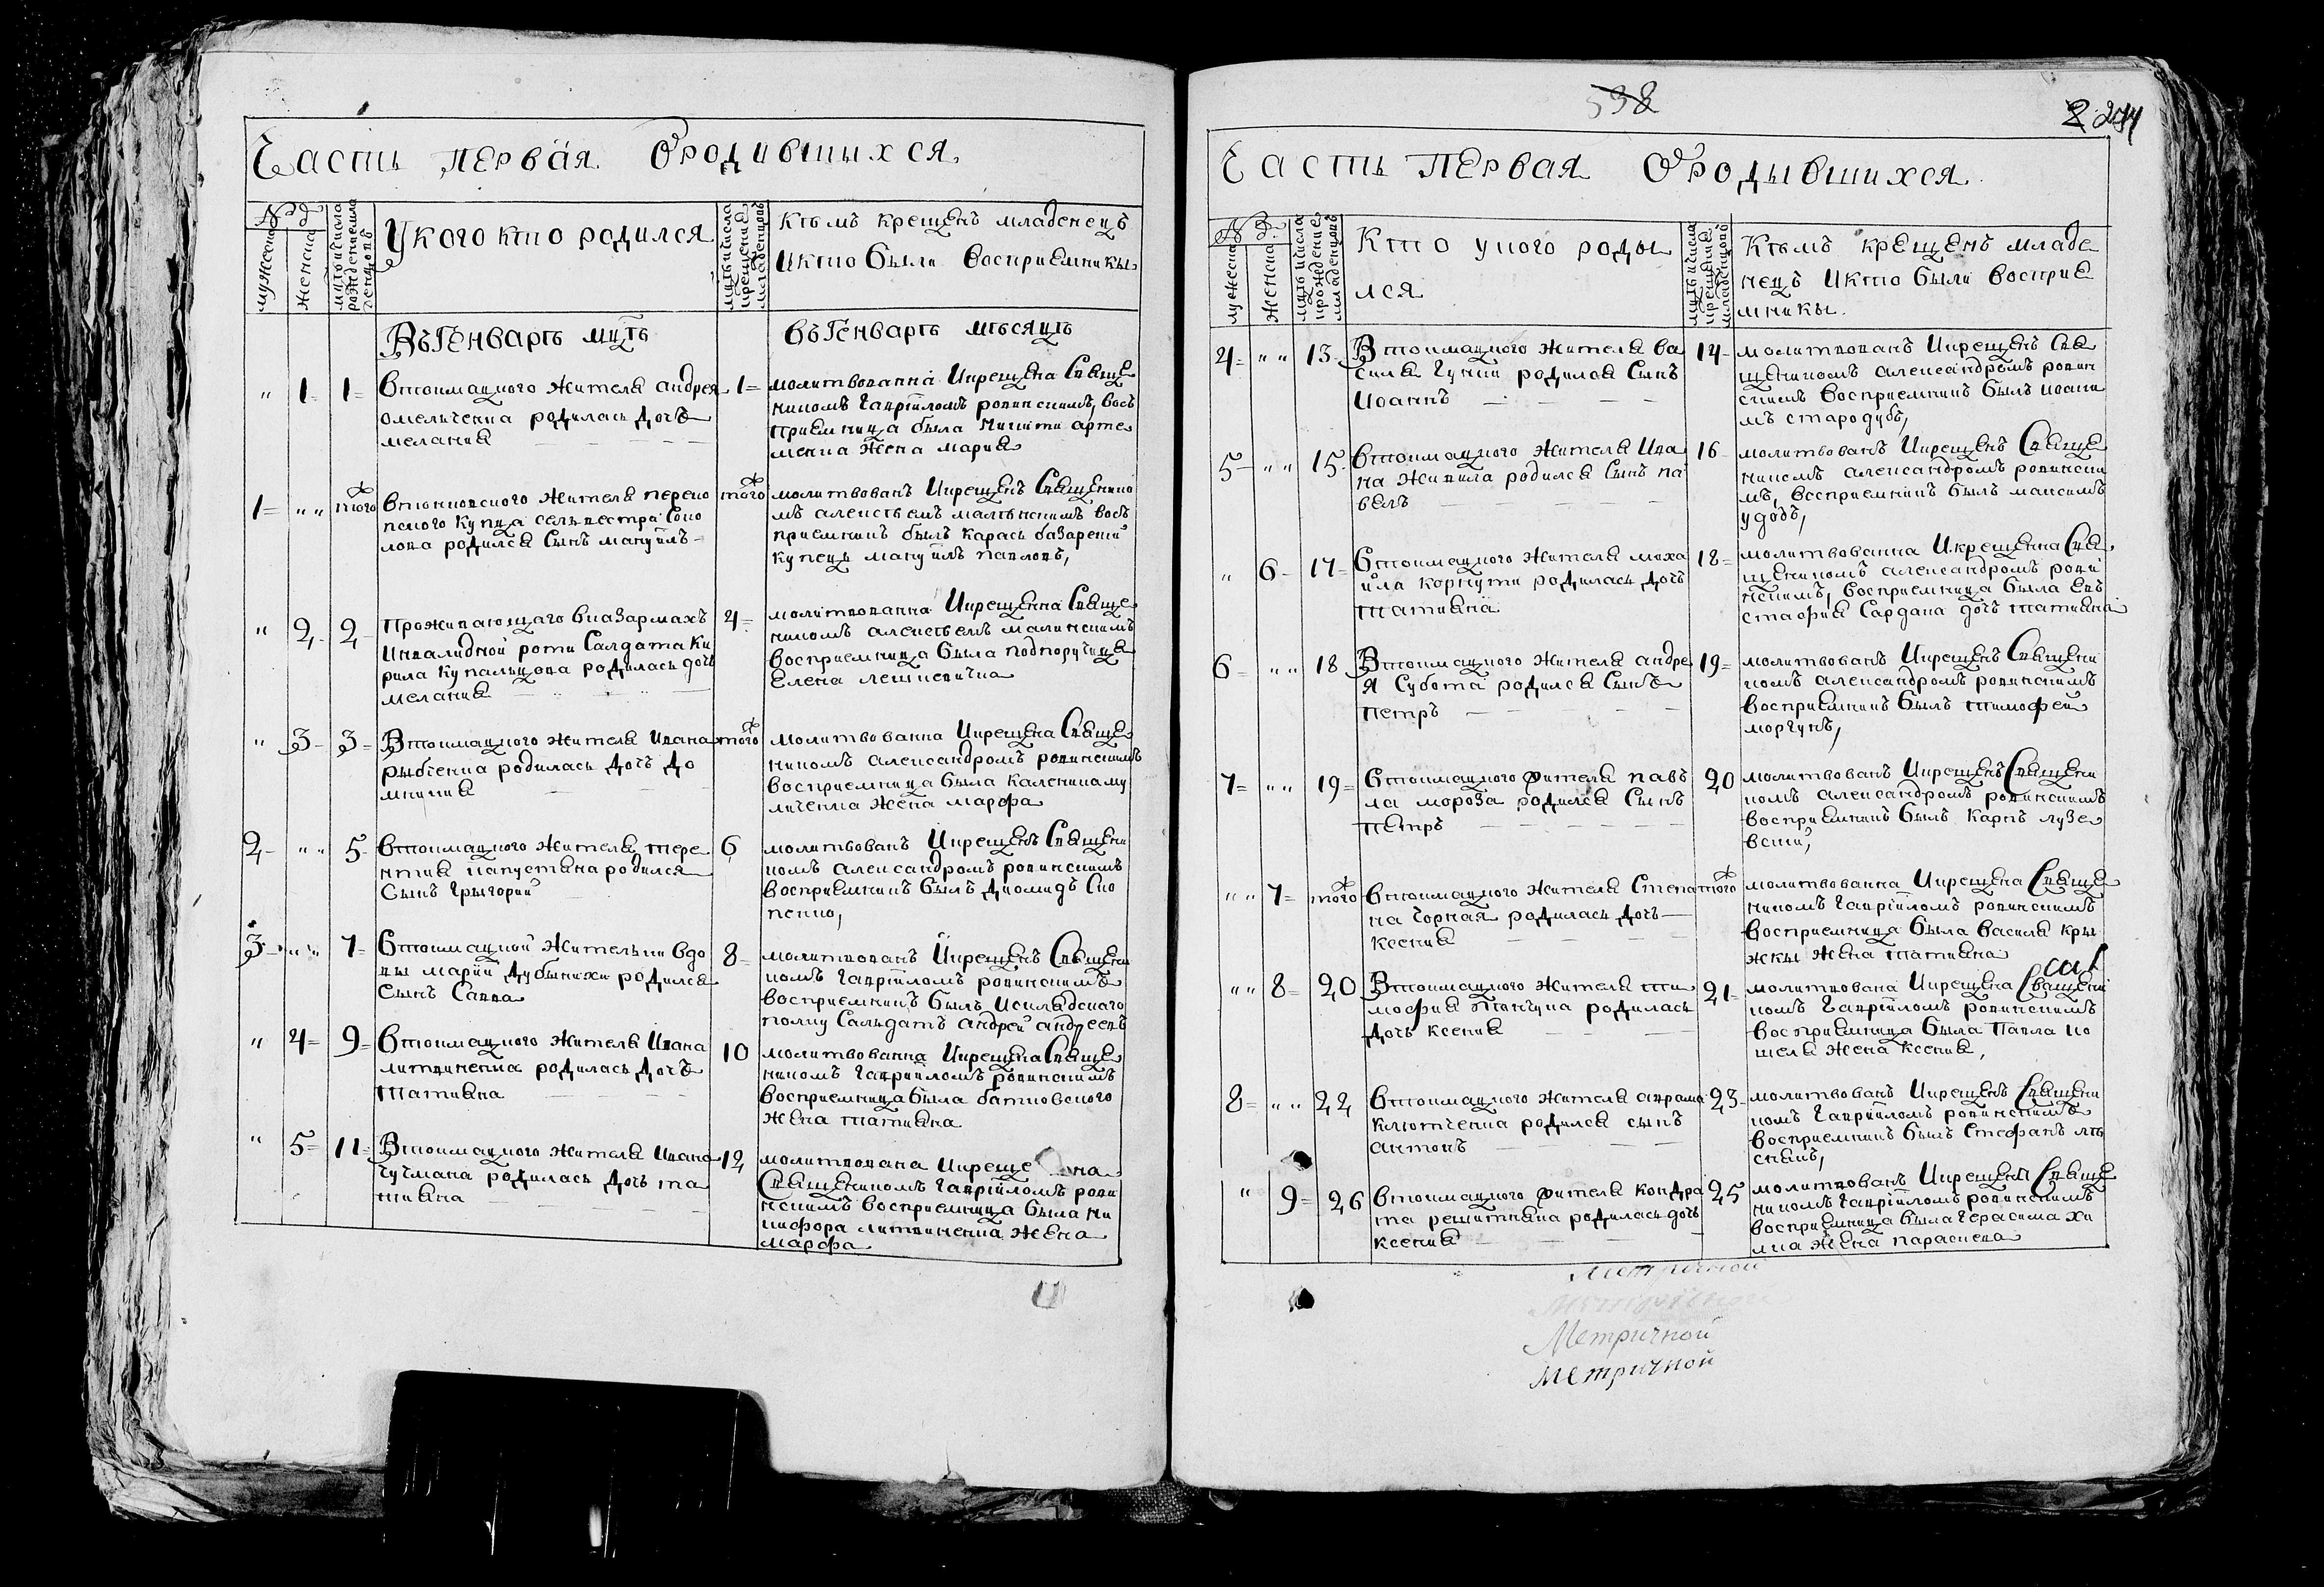 Часть первая Ородившихся.
№ д
мужеска
женска
мцъ и числа
рожденiе мла
денцовъ
Укого кто родился
мцъ и числа
крещенiе
младенцовъ
Кѣмъ крещенъ младенецъ
икто были восприемники
ВъГенварѣ мцѣ
въГенварѣ мѣсяцѣ
" 1 1
втокмацкого жителя андрея
омельченка родилась дочь
мелания
1
молитвованна Икрещена Свяще
никомъ гаврiиломъ ровинскимъ, вос
приемница была Никити арте
менка жена мария
1 " " того
жителя
купца селвестра Соко
лова родился Сынъ мануилъ
того
молитвованъ Икрещенъ Священико
мъ алексѣемъ малѣнскимъ вос
приемникъ былъ карась базарский
купецъ мануилъ павловъ,
" 2 2
Проживающаго
Инвалидной роти Салдата Ки
рила купальцова родилась дочь
мелания
4
молитвованна Икрещенна Свяще
никомъ алексѣемъ малинскимъ
восприемница была подпоручица
Елена
" 3 3
Втокмацкого жителя Ивана
рыбченка родилась дочь до
мникия
того
молитвованна Икрещена Свяще
никомъ александромъ ровинскимъ
восприемница была
жена марфа
2 " " 5
втокмацкого жителя тере
нтия капустяна родился
Сынъ Григорий
6
молитвованъ Икрещенъ Священи
комъ александромъ ровинскимъ
восприемникъ былъ Диомидъ Ско
пенко,
3 " " 7
Втокмацкой жительки вдо
вы марии дубынихи родился
Сынъ Савва
8
молитвованъ Икрещенъ Священи
комъ гаврiиломъ ровинскимъ
восприемникъ былъ
полку Сальдатъ андрей андреевъ
" 4 9
втокмацкого жителя Ивана
литвиненка родилась дочь
татияна
10
молитвованна Икрещена Свяще
никомъ гаврiиломъ ровинскимъ
восприемница была батковского
жена татияна
" 5 11
Втокмацкого жителя Ивана
чучмана родилась дочь та
тияна
12
молитвована Икреще на
Священикомъ гаврiиломъ рови
нскимъ восприемница была Ни
кифора литвиненка жена
марфа
538
Часть первая Ородывшихся.
мужеска
женска
мцъ и числа
рожденiе
младенцовъ
Кто укого роды
лся
мцъ и числа
крещенiе
младенцовъ
Кѣмъ крещенъ младе
нецъ икто были восприе
мники.
4 " " 13
Втокмацкого жителя ва
силя Гучки родился Сынъ
Иоаннъ
14
молитвованъ Икрещенъ Свя
щеникомъ александромъ ровин
скимъ восприемникъ былъ иоанн
мъ стародубъ,
5 " " 15
втокмацкого жителя Ива
на живила родился Сынъ па
велъ
16
молитвованъ Икрещенъ Свяще
никомъ александромъ ровински
мъ, восприемникъ былъ максимъ
удодъ,
" 6 17
Втокмацкого жителя миха
ила корнути родилась дочь
татияна
18
молитвованна Икрещенна Свя
щеникомъ александромъ рови
нскимъ, восприемница была Ев
стафия Сардака дочь татияна
6 " " 18
Втокмацкого жителя андре
я Субота родился Сынъ
петръ
19
молитвованъ Икрещенъ Священи
комъ александромъ ровинскимъ
восприемникъ былъ тимофей
моргунъ,
7 " " 19
Втокмацкого жителя пав
ла мороза родился Сынъ
петръ
20
молитвованъ Икрещенъ Священи
комъ александромъ ровинскимъ
восприемникъ былъ карпъ
" " 7 того
втокмацкого жителя Степа
на Чорная родилась дочь
ксения
того
молитвованна Икрещена Свяще
никомъ гаврiиломъ ровинскимъ
восприемница была василя кры
жкы жена татияна
" " 8 20
Втокмацкого жителя ти
мофия родилась
дочь ксения
21
молитвована Икрещена Священи
комъ гаврiиломъ ровинскимъ
восприемница была Павла ко
шеля жена ксения,
8 " " 22
втокмацкого жителя аврама
ключенка родился сынъ
антонъ
23
молитвованъ Икрещенъ Священи
комъ гаврiиломъ ровинскимъ
восприемникъ былъ Стефанъ
" 9 26
втокмацкого жителя кондра
та решитняка родилась дочь
ксения
25
молитвованъ Икрещенъ Свяще
никомъ гаврiиломъ ровинскимъ
восприемница была герасима
жена параскева
Метричной
Метричной
Метричной